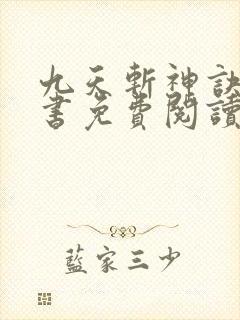 九天斬神訣
書免費閱讀
藍家三少